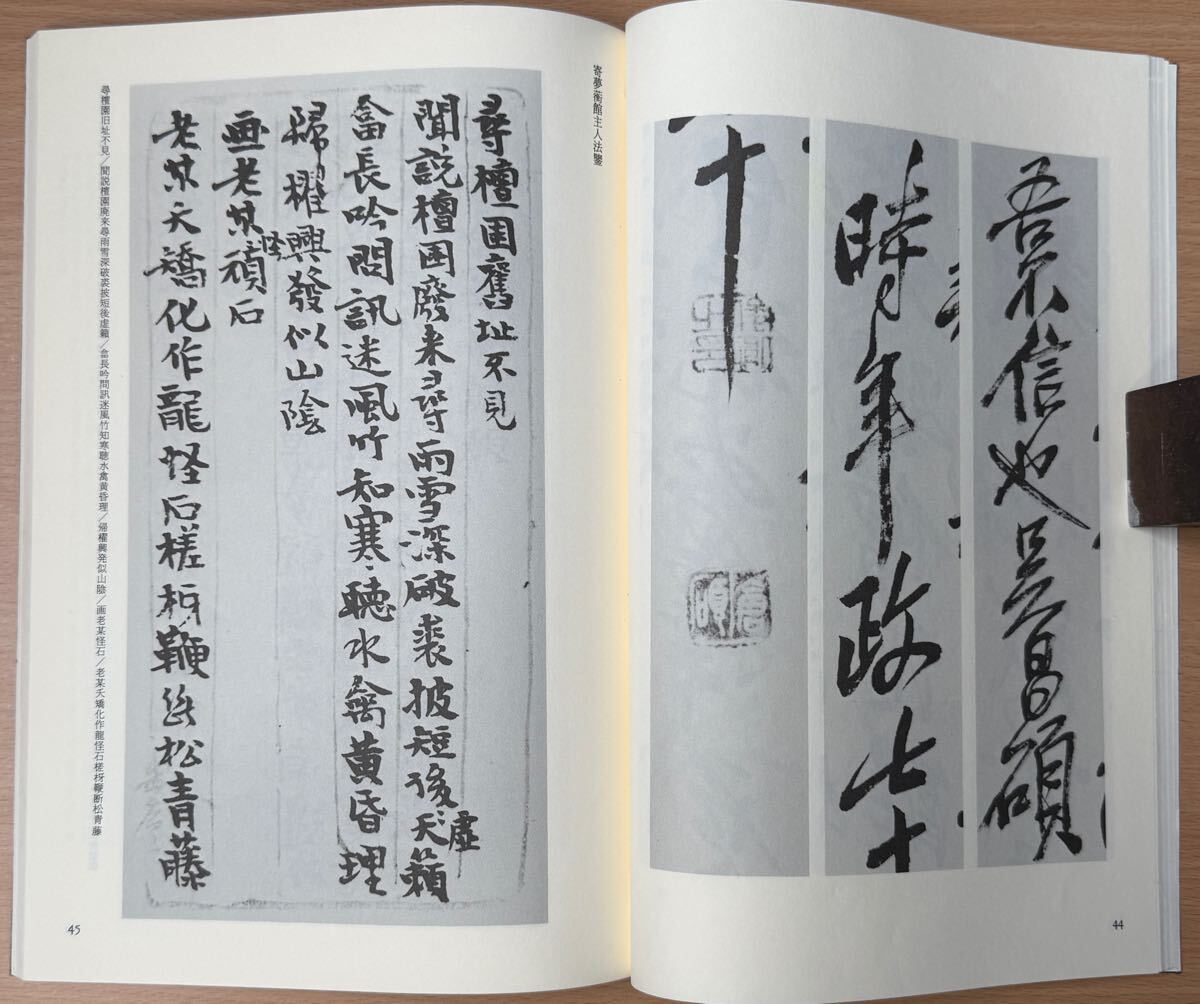 吾不信也吳昌碩
時年政七十
十
44
寄夢蘅館主人法鑒
尋檀園舊址不見
聞説檀園廢来尋雨雪深破裘披短後天籟
虛
畣長吟問訊迷風竹知寒聽水禽黄昏理
歸櫂興發似山陰
画老某頑石
怪
老某夭矯化作龍怪石槎枒鞭斷松青藤
尋檀園旧址不見／聞説檀園廃来尋雨雪深破裘披短後虚籟／畣長吟問訊迷風竹知寒聴水禽黄昏理／帰櫂興発似山陰／画老某怪石／老某夭矯化作龍怪石槎枒鞭断松青藤
45